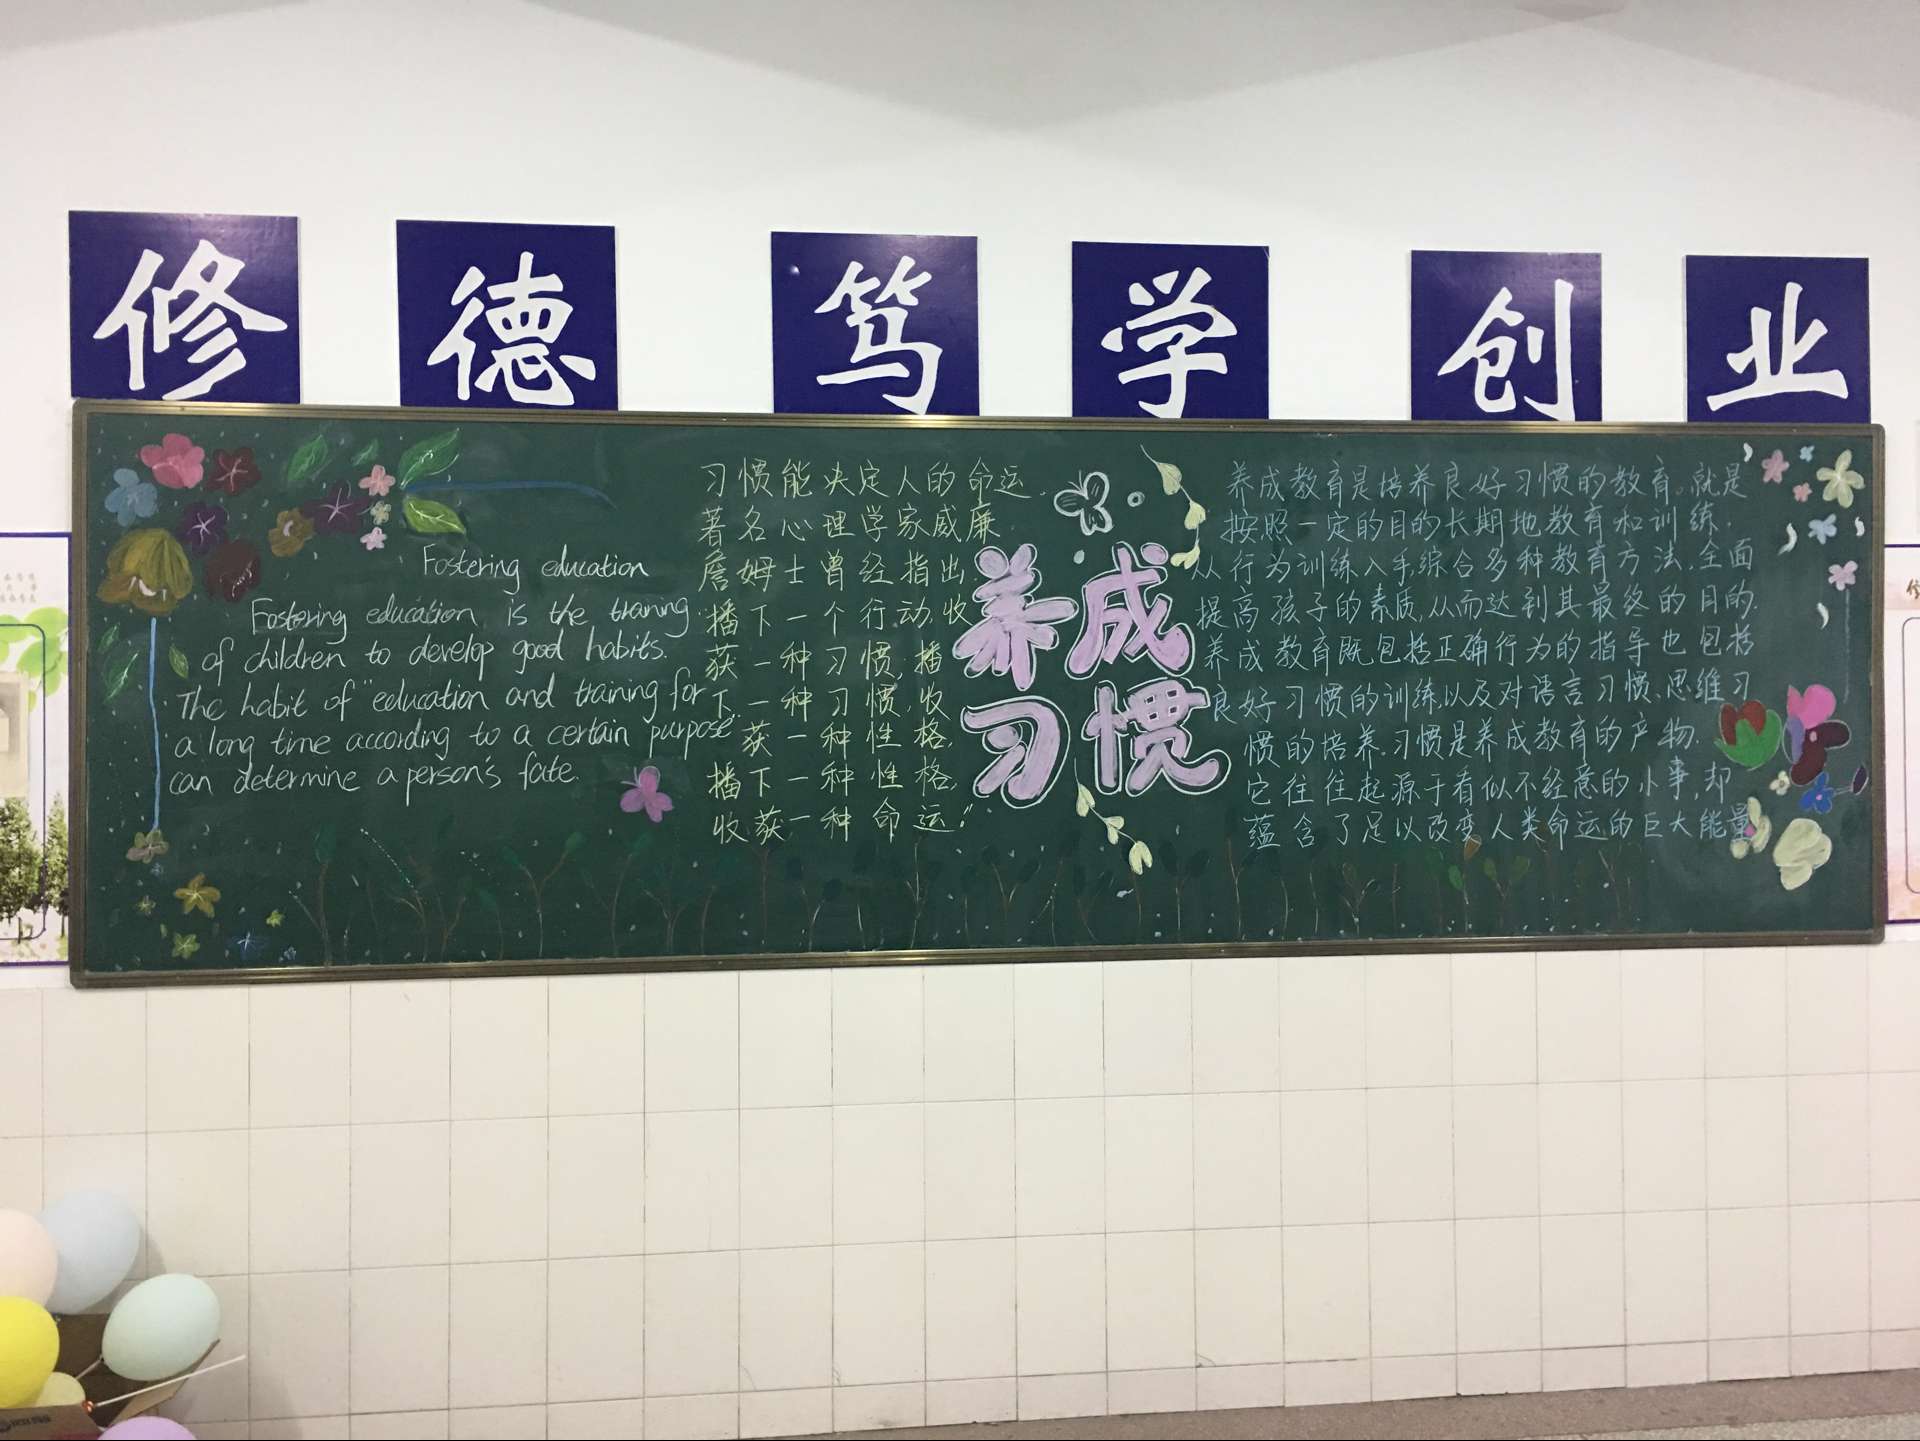 修德笃学创业
Fostering education
Fostering education is the training
of children to develop good habits.
The habit of "education and training for
a long time according to a certain purpose
can determine a person's fate.
习惯能决定人的命运.
著名心理学家威廉
詹姆士曾经指出:
"播下一个行动,收
获一种习惯;播
下一种习惯,收
获一种性格,
播下一种性格,
收获一种命运."
养成
习惯
养成教育是培养良好习惯的教育。就是
按照一定的目的长期地教育和训练.
从行为训练入手,综合多种教育方法,全面
提高孩子的素质,从而达到其最终的目的.
养成教育既包括正确行为的指导也包括
良好习惯的训练以及对语言习惯、思维习
惯的培养.习惯是养成教育的产物.
它往往起源于看似不经意的小事,却
蕴含了足以改变人类命运的巨大能量